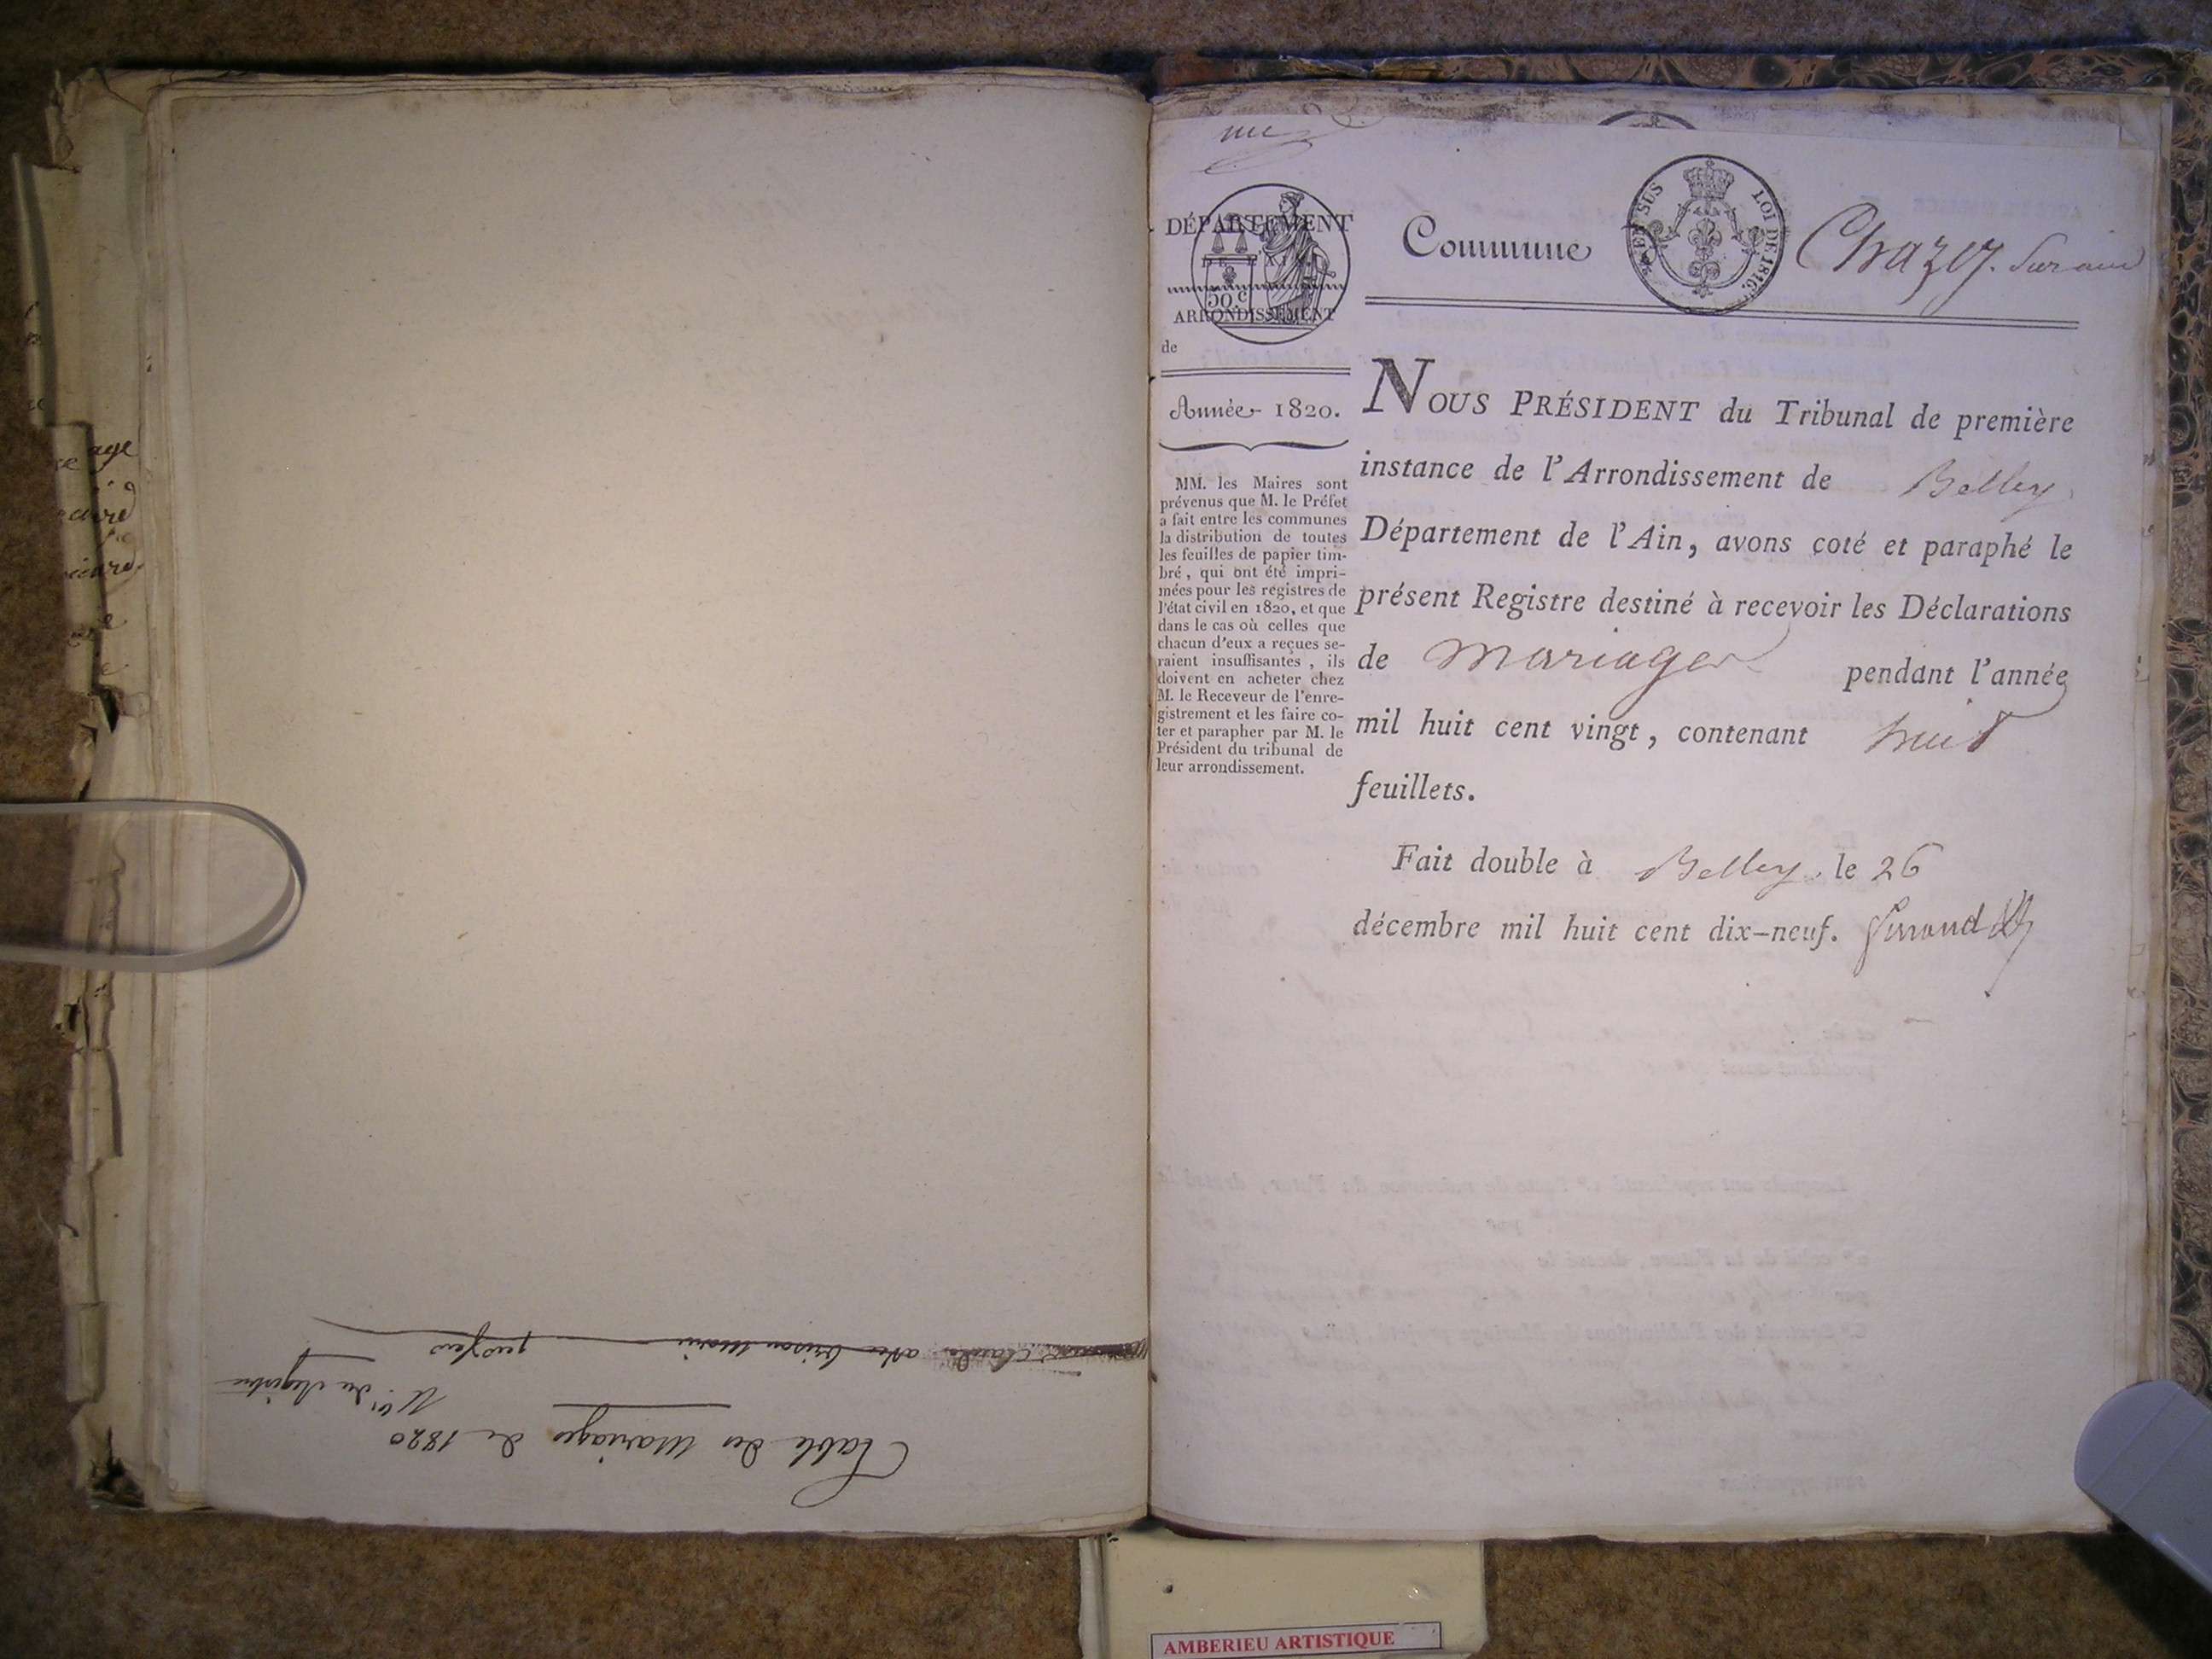 DÉPARTEMENT
DE L'AIN
50 c
ARRONDISSEMENT
de
Année 1820.
MM. les Maires sont
prévenus que M. le Préfet
a fait entre les communes
la distribution de toutes
les feuilles de papier tim-
bré, qui ont été impri-
mées pour les registres de
l'état civil en 1820, et que
dans le cas où celles que
chacun d'eux a reçues se-
raient insuffisantes, ils
doivent en acheter chez
M. le Receveur de l'enre-
gistrement et les faire co-
ter et parapher par M. le
Président du tribunal de
leur arrondissement.
Commune
EN SUS LOI DE 1816.
Chazey. Sur ain
NOUS PRÉSIDENT du Tribunal de première
instance de l'Arrondissement de Belley
Département de l'Ain, avons coté et paraphé le
présent Registre destiné à recevoir les Déclarations
de mariages pendant l'année
mil huit cent vingt, contenant huit
feuillets.
Fait double à Belley, le 26
décembre mil huit cent dix-neuf.
Table des Mariages de 1820
Nos du Registre
Claude avec
AMBERIEU ARTISTIQUE